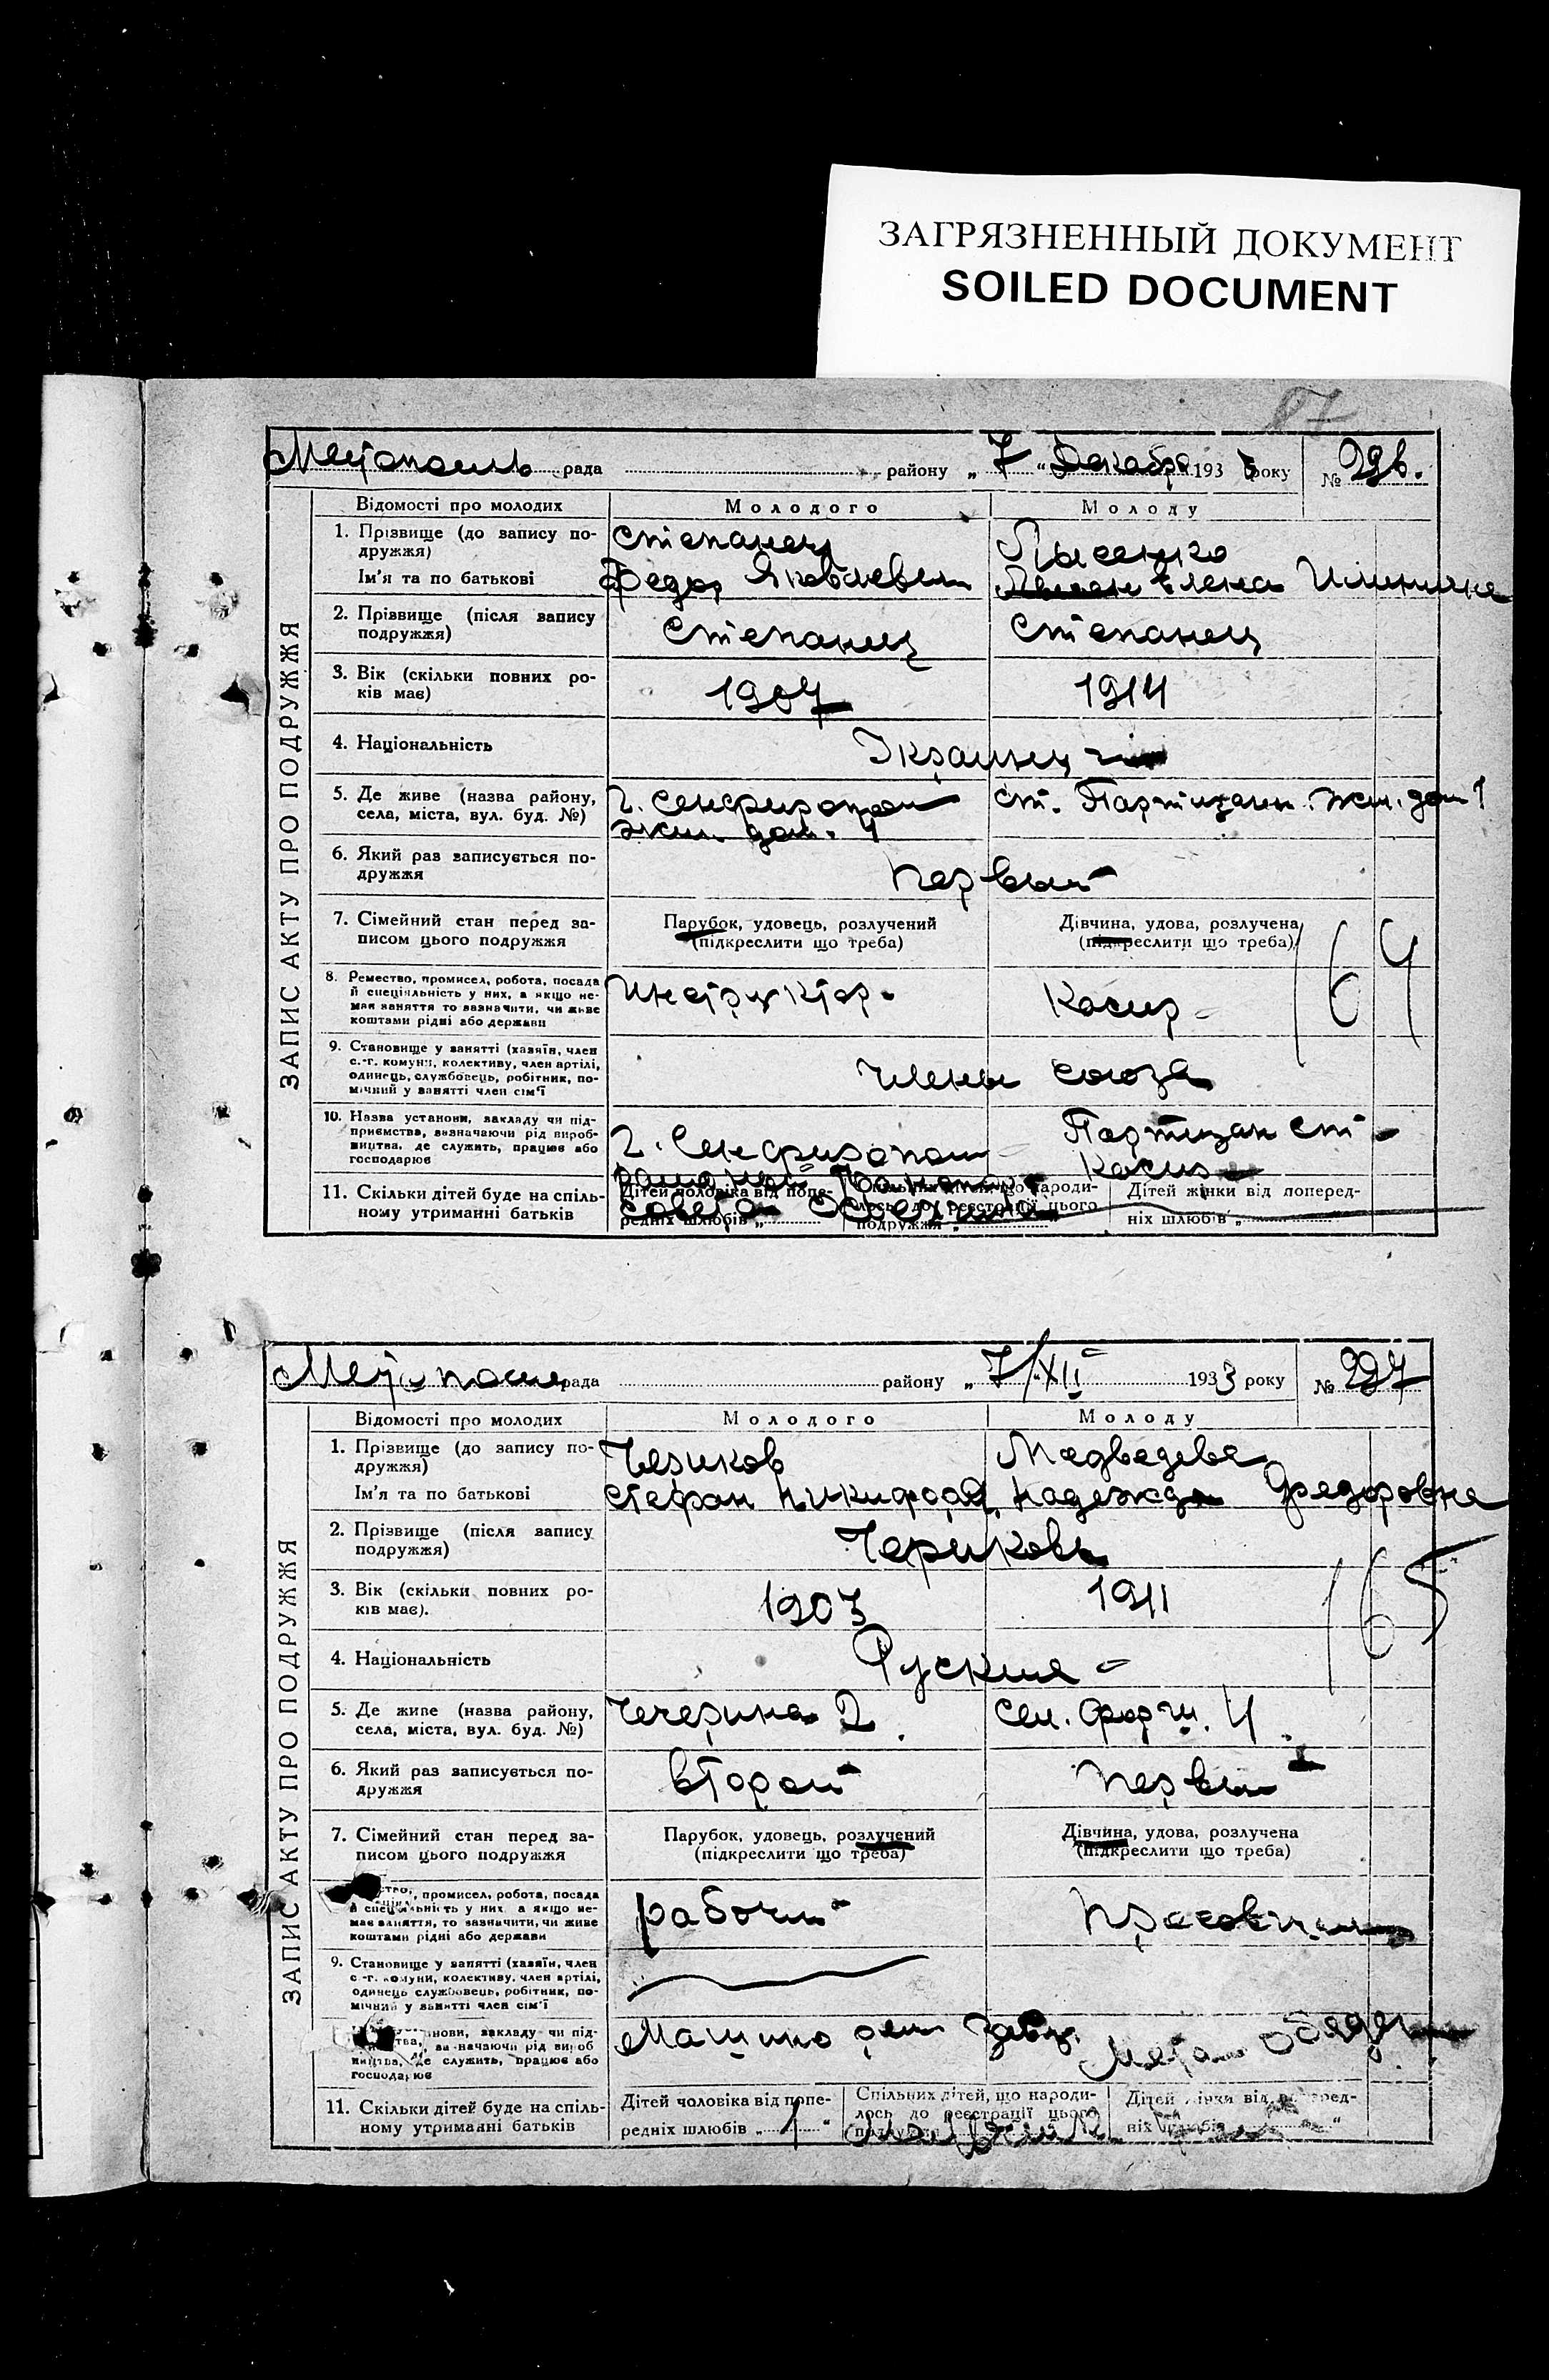 ЗАГРЯЗНЕННЫЙ ДОКУМЕНТ
SOILED DOCUMENT
87
Метополь рада району „ 7 “ Декабря 1933 року № 226.
ЗАПИС АКТУ ПРО ПОДРУЖЖЯ
Відомості про молодих Молодого Молоду
1. Прізвище (до запису по- Степанец Лысенко
дружжя)
Ім'я та по батькові Федор Яковлевич Елена Илинична
2. Прізвище (після запису Степанец Степанец
подружжя)
3. Вік (скільки повних ро- 1907 1914
ків має)
4. Національність Украинц
5. Де живе (назва району, г. Симферополь ст. Партизани. жил. дом 1
села, міста, вул. буд. №) жил. дом. 4
6. Який раз записується по- первый
дружжя
7. Сімейний стан перед за- Парубок, удовець, розлучений Дівчина, удова, розлучена
писом цього подружжя (підкреслити що треба) (підкреслити що треба)
164
8. Ремество, промисел, робота, посада Инструктор. Касир
й спеціяльність у них, а якщо не-
має заняття то зазначити, чи живе
коштами рідні або держави
9. Становище у занятті (хазяїн, член члены союза
с.-г. комуни, колективу, член артілі,
одинець, службовець, робітник, по-
мічний у занятті член сім'ї
10. Назва установи, закладу чи під- Партизан ст
приємства, зазначаючи рід вироб- г. Симферополь касир
ництва, де служить, працює або
господарює
11. Скільки дітей буде на спіль- Дітей чоловіка від попе- Спільних дітей, що народи- Дітей жінки від поперед-
ному утриманні батьків редніх шлюбів „ лось до реєстрації цього ніх шлюбів „
подружжя „
Метополь рада району „ 7/XII 1933 року № 227
ЗАПИС АКТУ ПРО ПОДРУЖЖЯ
Відомості про молодих Молодого Молоду
1. Прізвище (до запису по- Чериков Медведева
дружжя)
Ім'я та по батькові Стефан Никифоров. Надежда Федоровна
2. Прізвище (після запису Чериковы
подружжя)
3. Вік (скільки повних ро- 1903 1911
ків має).
165
4. Національність Руские
5. Де живе (назва району, Чечерина 2. Сел. Форш. 4
села, міста, вул. буд. №)
6. Який раз записується по- второй первый
дружжя
7. Сімейний стан перед за- Парубок, удовець, розлучений Дівчина, удова, розлучена
писом цього подружжя (підкреслити що треба) (підкреслити що треба)
промисел, робота, посада рабочий
й спеціяльність у них а якщо не-
має заняття, то зазначити, чи живе
коштами рідні або держави
9. Становище у занятті (хазяїн, член
с.-г. комуни, колективу, член артілі,
одинець службовець, робітник, по-
мічний у занятті член сім'ї
закладу чи під- Машино рем завод.
зазначаючи рід вироб
ництва, де служить, працює або
господарює
11. Скільки дітей буде на спіль- Дітей чоловіка від попе- Спільних дітей, що народи- Дітей жінки від поперед-
ному утриманні батьків редніх шлюбів „ 1 “ лось до реєстрації цього ніх шлюбів